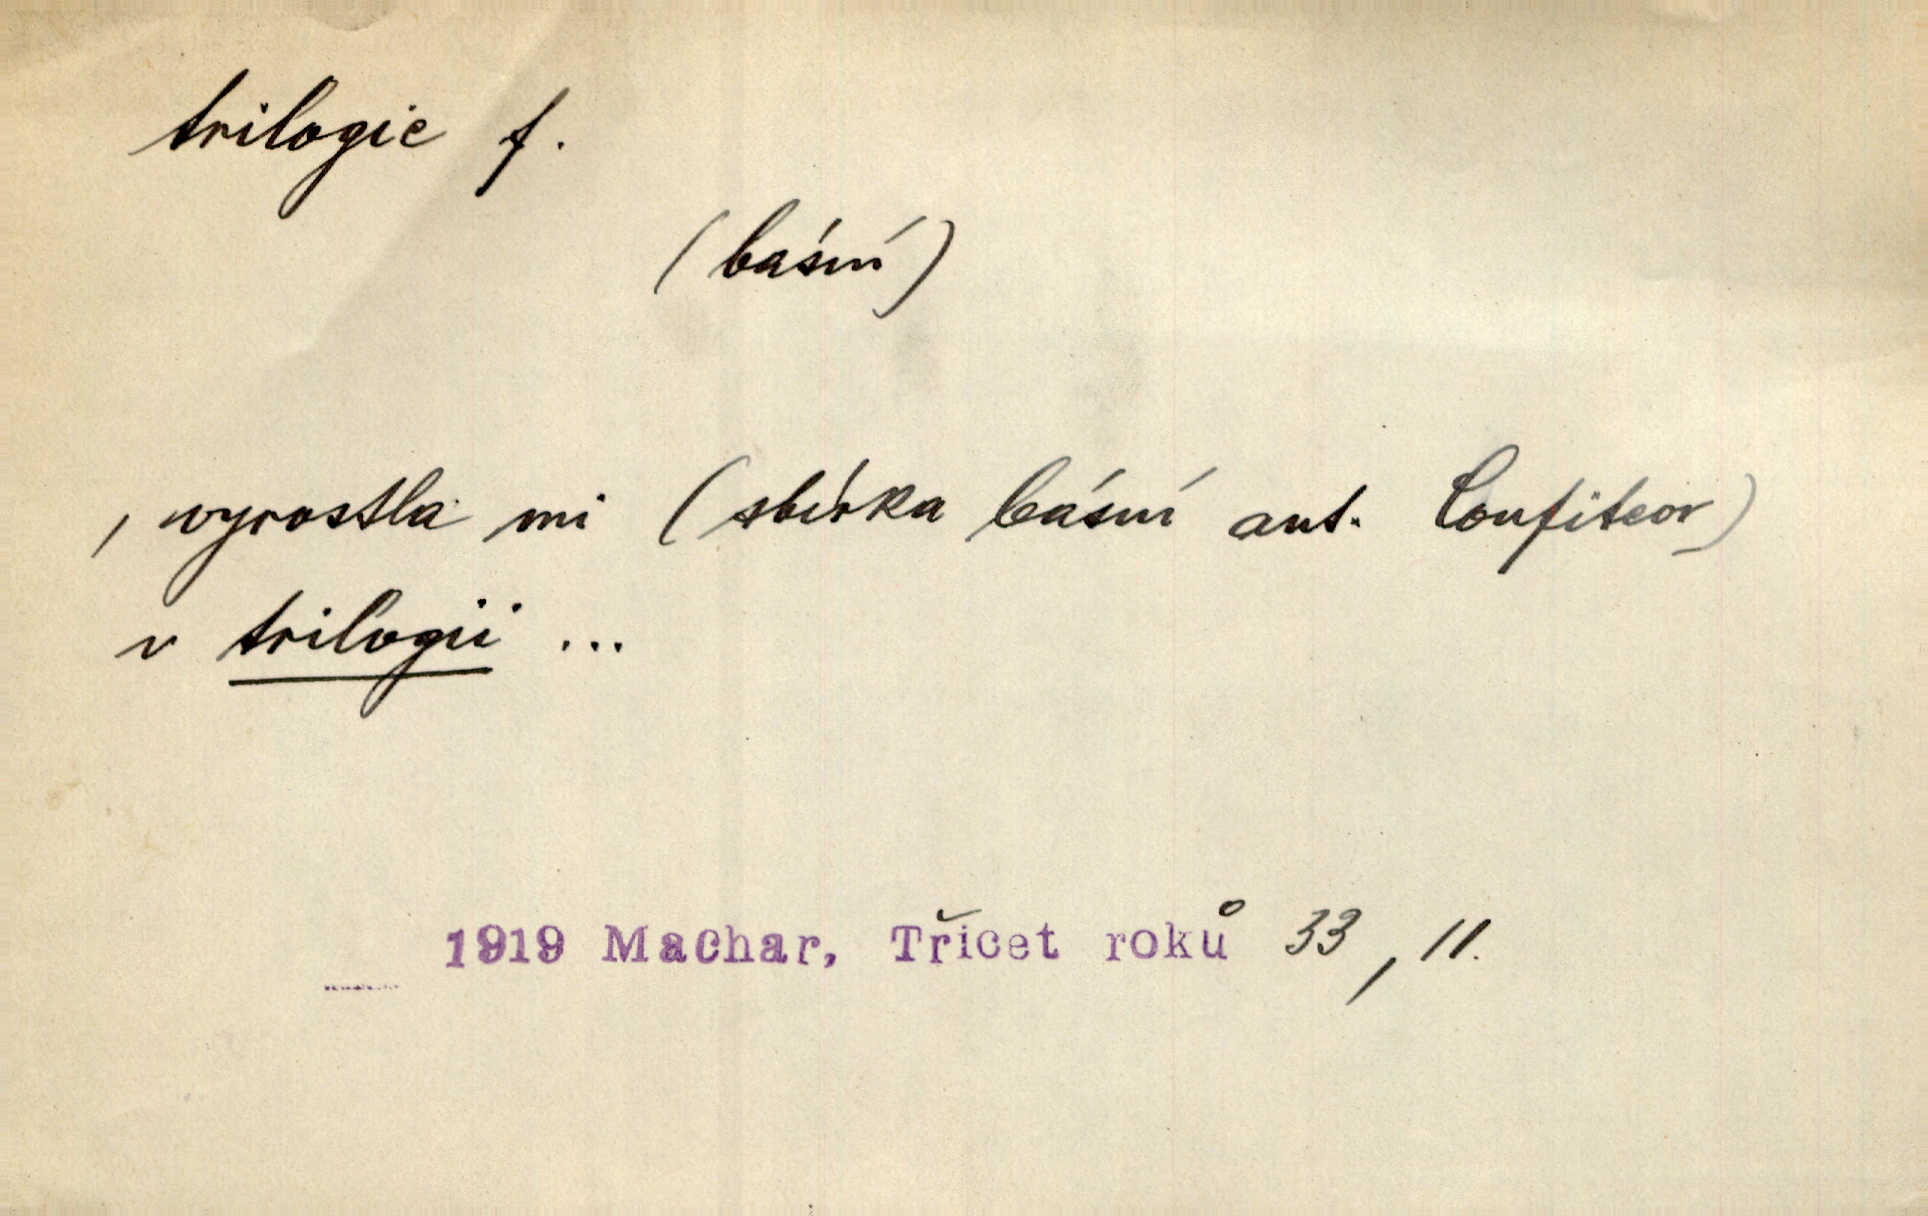 trilogie f.
(básní)
, vyrostla mi (sbírka básní aut. Confiteor)
v trilogii ...
1919 Machar, Třicet roků 33, 11.